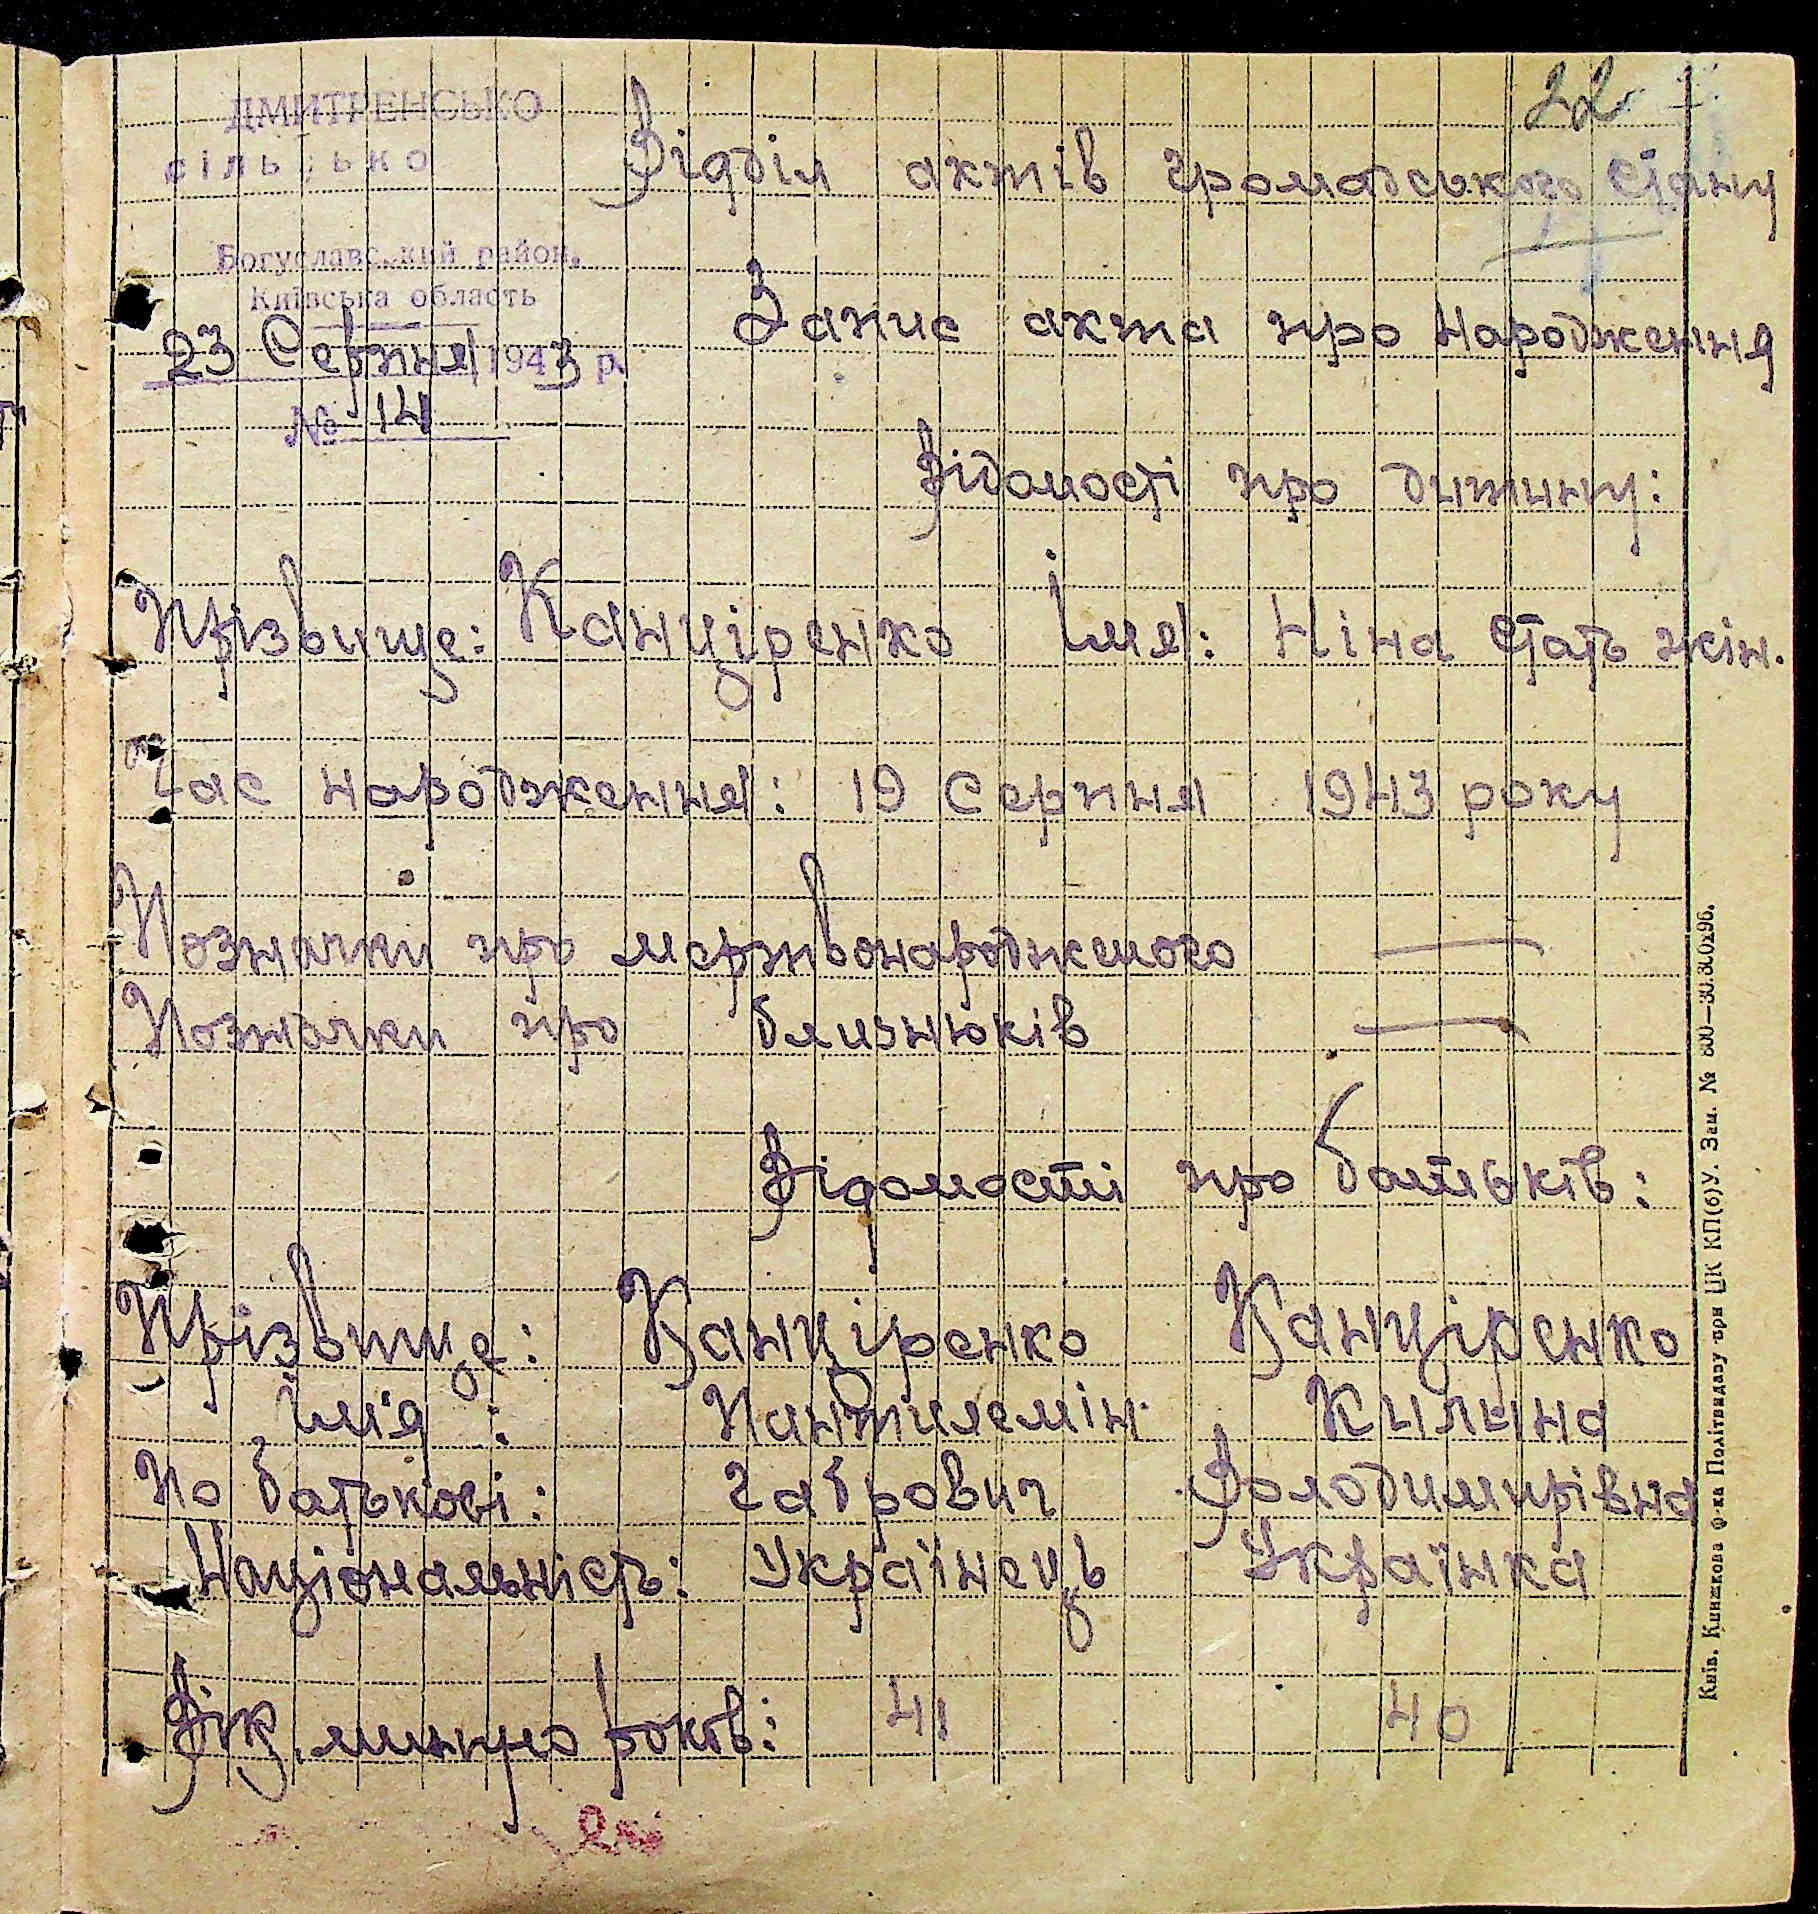 22
ДМИТРЕНСЬКО
сільсько
Відділ актів громадського стану
Богуславський район,
Київська область
23 Серпня 1943 р.
Запис акта про народження
№ 14
Відомості про дитину:
Прізвище: Канціренко Імя: Ніна стать жін.
Час народження: 19 Серпня 1943 року
Позначки про мертвонародженого —
Позначки про близнюків —
Відомості про батьків:
Прізвище: Канціренко Канціренко
Імія: Пантилемін Килина
По батькові: Габрович Володимирівна
Національність: Українець Українка
Вік минуло років: 41 40
Київ. Книжкова ф-ка Політвидаву при ЦК КП(б)У. Зам. № 800—30.300х96.